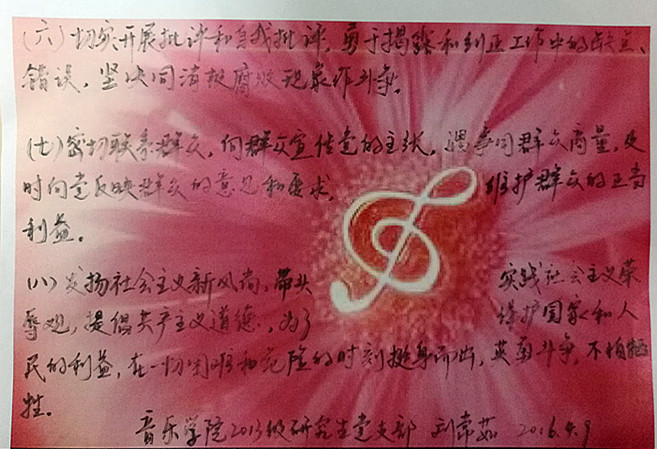 (六)切实开展批评和自我批评，勇于揭露和纠正工作中的缺点、
错误，坚决同消极腐败现象作斗争。
(七)密切联系群众，向群众宣传党的主张，遇事同群众商量，及
时向党反映群众的意见和要求，维护群众的正当
利益。
(八)发扬社会主义新风尚，带头实践社会主义荣
辱观，提倡共产主义道德，为了保护国家和人
民的利益，在一切困难和危险的时刻挺身而出，英勇斗争，不怕牺
牲。
音乐学院2015级研究生党支部 刘常茹 2016.4.9